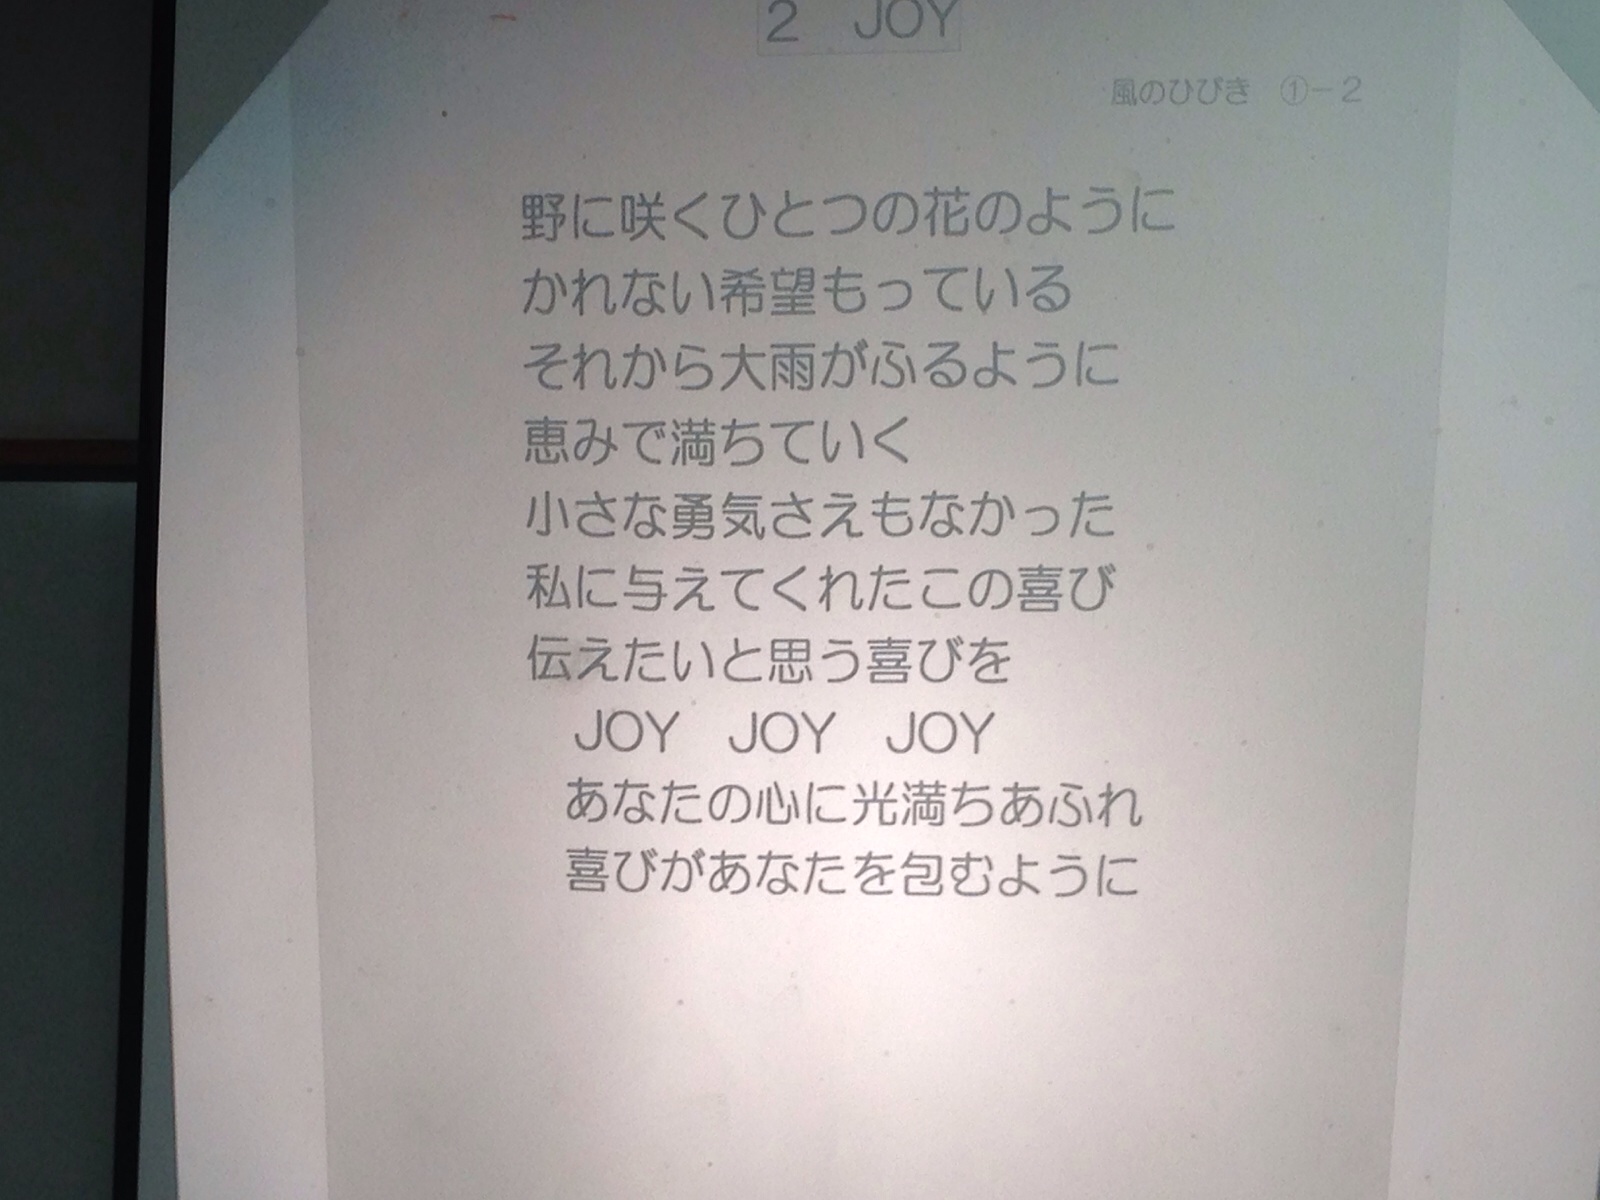 2 JOY
風のひびき ①－2
野に咲くひとつの花のように
かれない希望もっている
それから大雨がふるように
恵みで満ちていく
小さな勇気さえもなかった
私に与えてくれたこの喜び
伝えたいと思う喜びを
JOY JOY JOY
あなたの心に光満ちあふれ
喜びがあなたを包むように